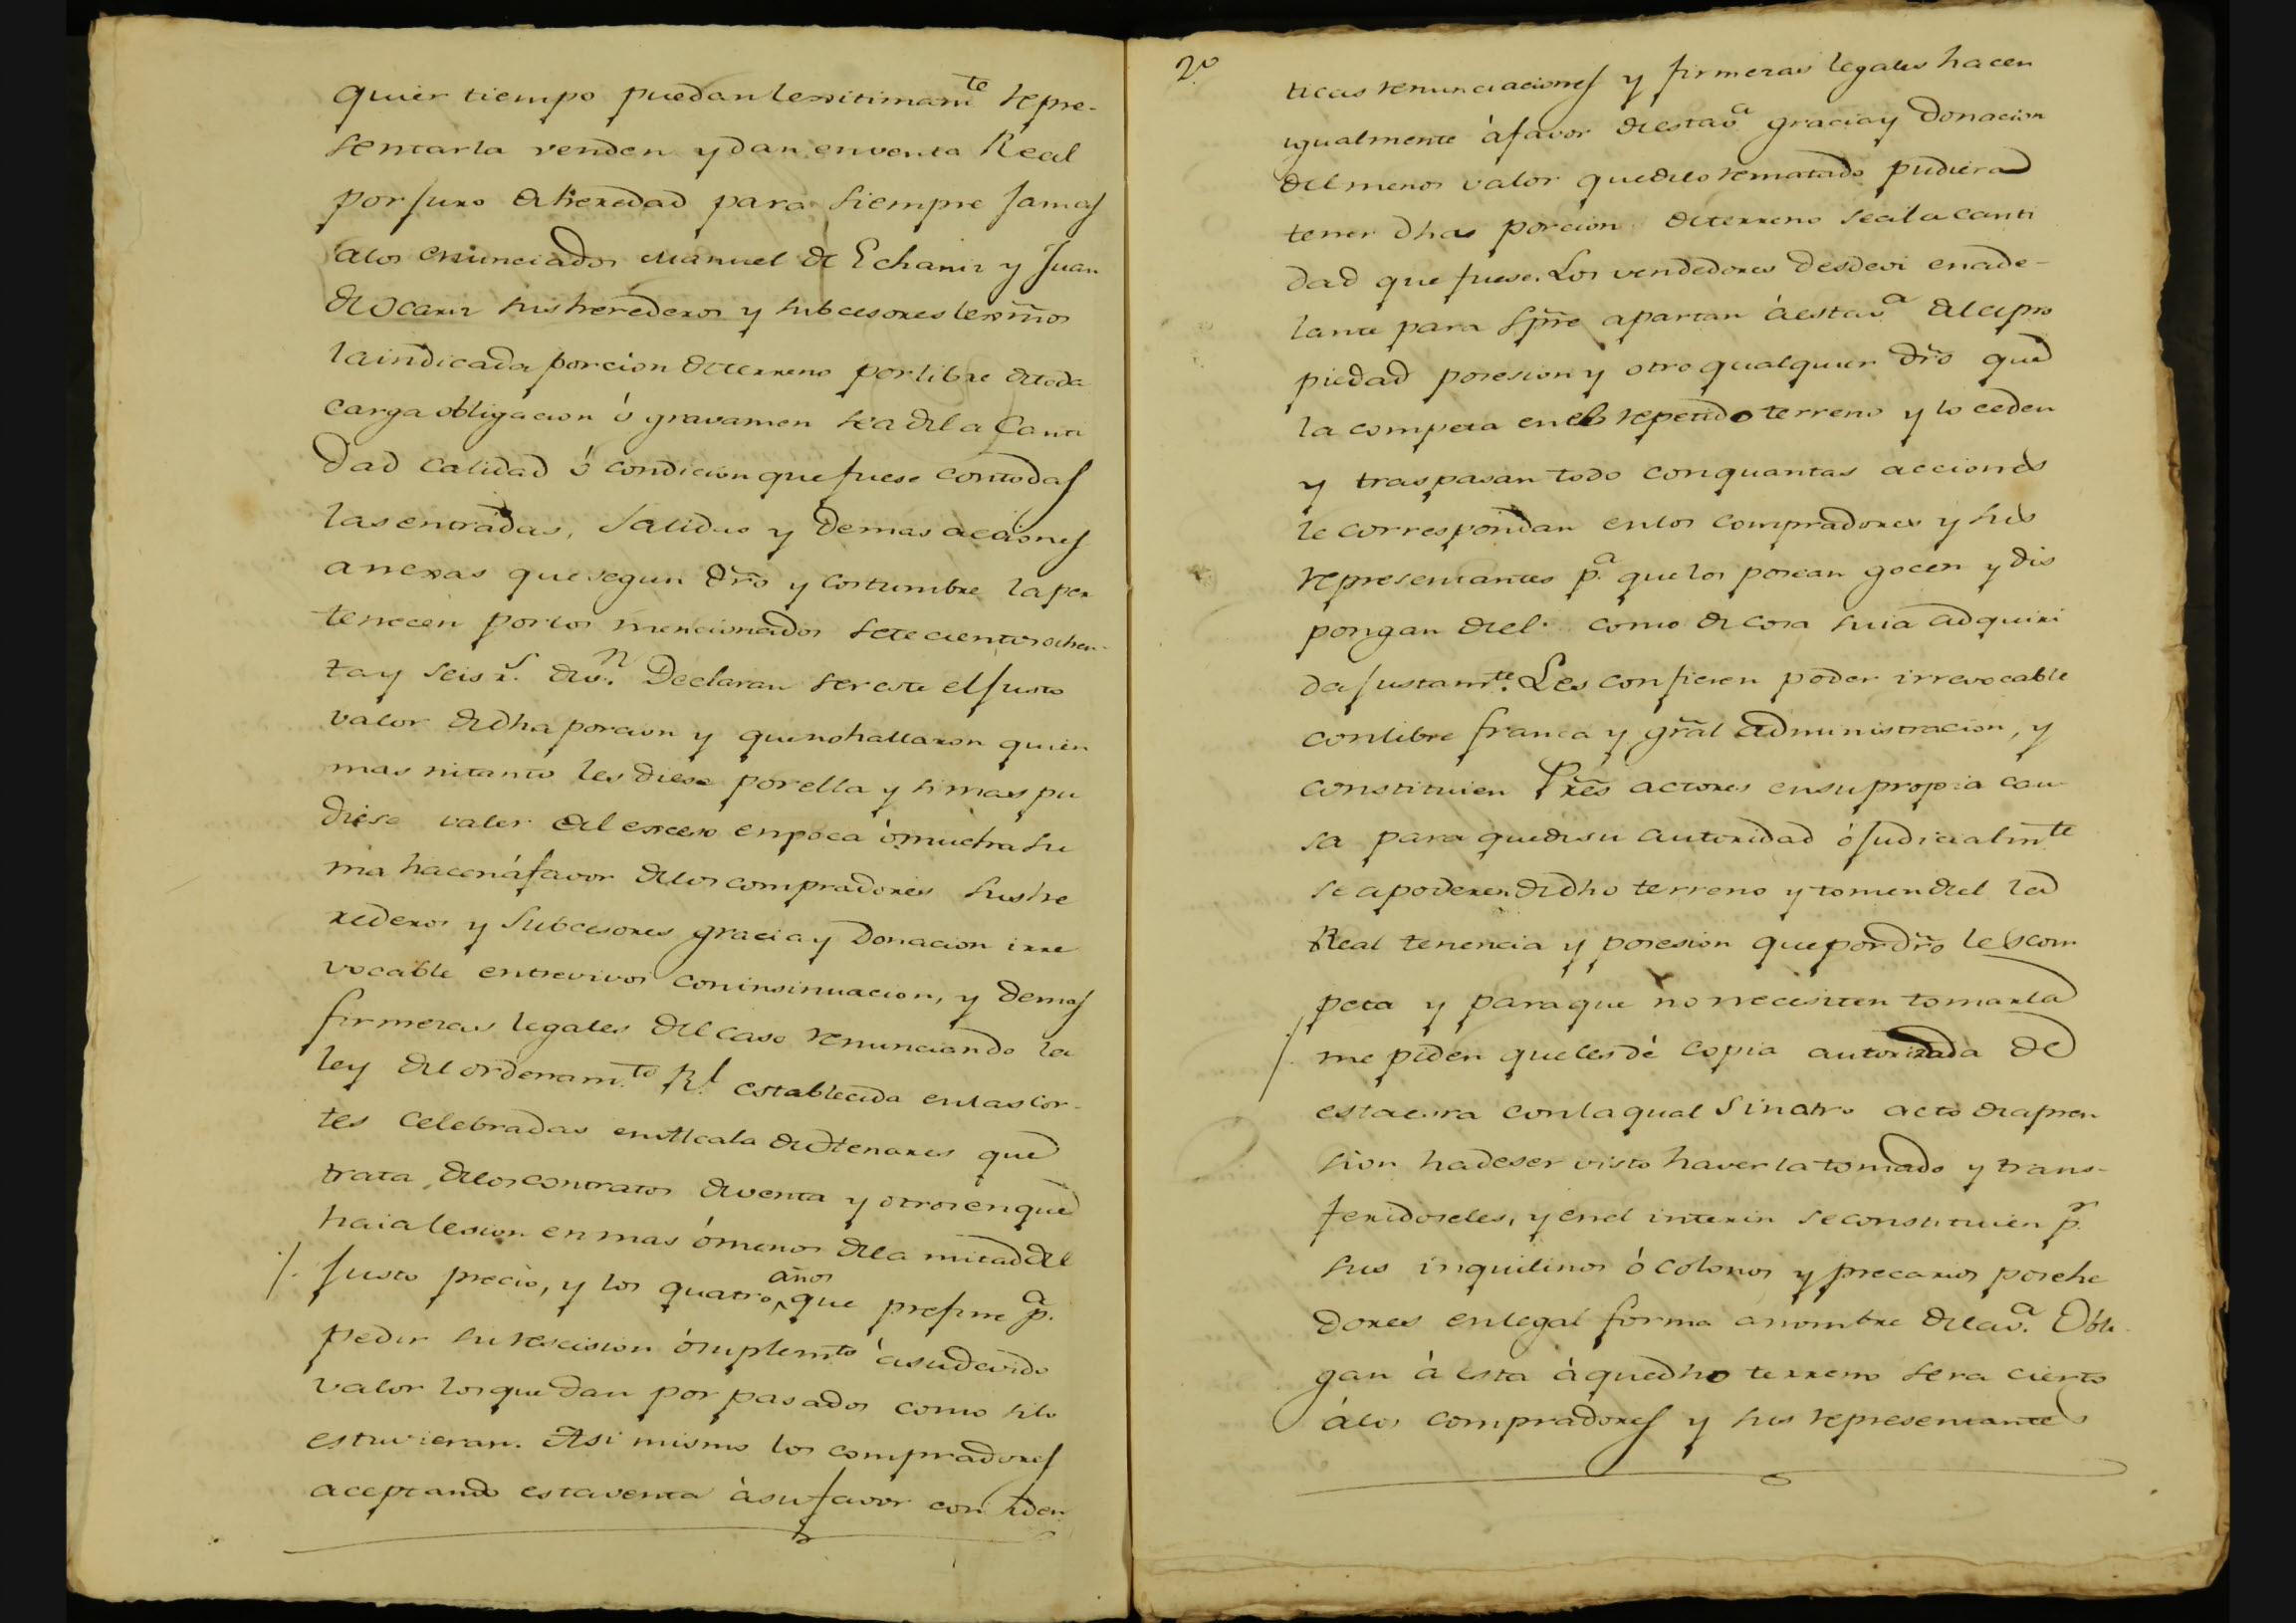 quier tiempo puedan lexitimam.te repre-
sentarla venden y dan en venta Real
por juro de heredad para siempre jamas
a los enunciados Manuel de Echaniz y Juan
de Ocariz sus herederos y subcesores lexmos
la indicada porcion de terreno por libre de toda
carga obligacion ó gravamen sea de la canti
dad calidad ó condicion que fuese con todas
las entradas, salidas y demas acciones
anexas que segun dro y costumbre la per
tenecen por los mencionados setecientos ochen-
ta y seis r.s de v.n Declaran ser este el justo
valor de dha porcion y que no hallaron quien
mas ni tanto les diese por ella y si mas pu
diese valer del exceso en poca ó mucha su
ma hacen á favor de los compradores sus he
rederos y subcesores gracia y Donacion irre
vocable entrevivos con insinuacion, y demas
firmezas legales del caso renunciando la
ley del ordenam.to R.l establecida en las cor-
tes celebradas en Alcala de Henares que
trata de los contratos de venta y otros en que
haia lesion en mas ó menos de la mitad del
/. justo precio, y los quatro años que prefine p.a
pedir su rescision ó suplem.to á su devido
valor los que dan por pasados como si lo
estuvieran. Asi mismo los compradores
aceptando esta venta á su favor con iden
2.o
ticas renunciaciones y firmezas legales hacen
igualmente á favor de esta v.a gracia y Donacion
del menos valor que de lo rematado pudiera
tener dha porcion de terreno sea la canti
dad que fuese. Los vendedores desde oi en ade-
lante para spre apartan á esta v.a de la pro
piedad posesion y otro qualquier dro que
la competa en el repetido terreno y lo ceden
y traspasan todo con quantas acciones
le correspondan en los compradores y sus
representantes p.a que los posean gocen y dis
pongan de el como de cosa suia adquiri
da justam.te Les confieren poder irrevocable
con libre franca y gral administracion, y
constituien Pres actores en su propia cau
sa para que de su autoridad ó judicialm.te
se apoderen de dho terreno y tomen de el la
Real tenencia y posesion que por dro les com
peta y para que no necesiten tomarla
/. me piden que les dé copia autorizada de
esta esra con la qual sin otro acto de apren
sion ha de ser visto haverla tomado y trans-
feridoseles, y en el interin se constituien p.r
sus inquilinos ó colonos y precarios posehe
dores en legal forma a nombre de la v.a Obli-
gan á esta á que dho terreno sera cierto
á los compradores y sus representantes